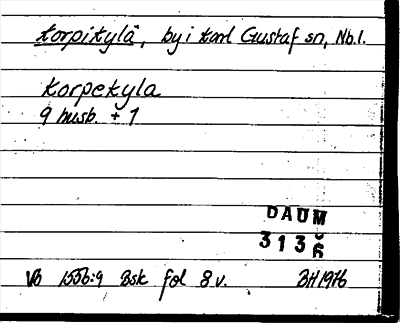 Korpikylä, by i Karl Gustaf sn, Nb.l.
Korpekyla
9 husb. + 1
DAUM
3136
Vb 1556:9 Bsk fol 8 v. BH 1976